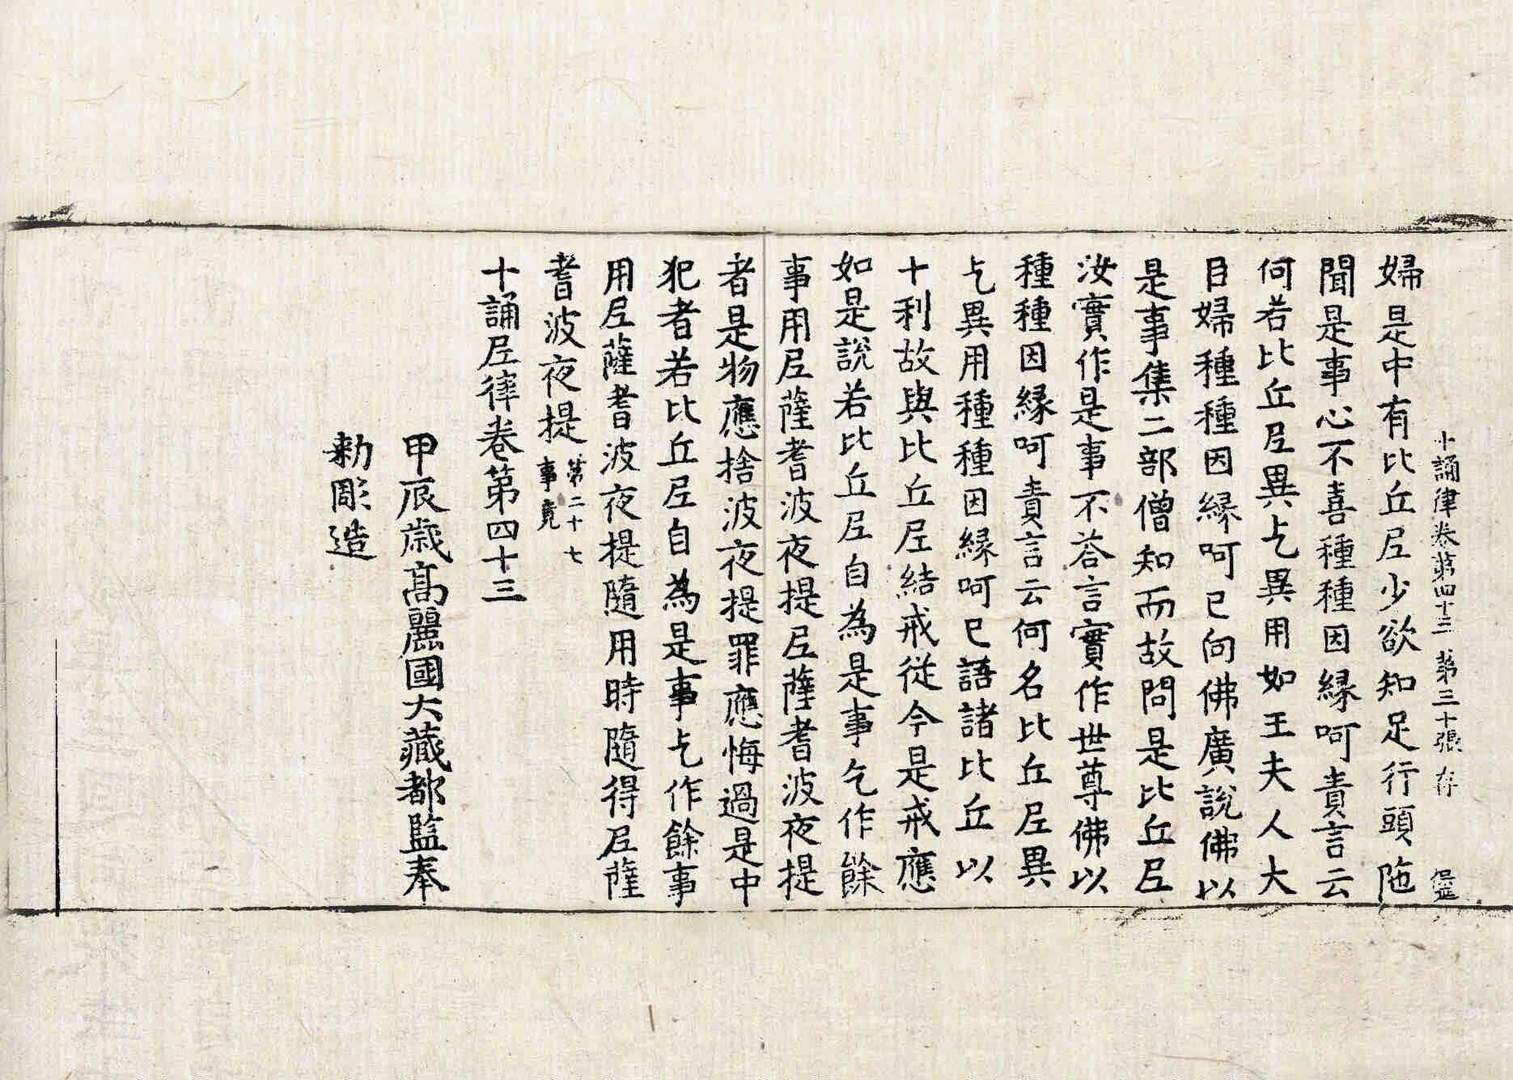 十誦律卷第四十三 第三十張 存
婦是中有比丘尼少欲知足行頭陁
聞是事心不喜種種因緣呵責言云
何若比丘尼異乞異用如王夫人大
臣婦種種因緣呵已向佛廣說佛以
是事集二部僧知而故問是比丘尼
汝實作是事不荅言實作世尊佛以
種種因緣呵責言云何名比丘尼異
乞異用種種因緣呵已語諸比丘以
十利故與比丘尼結戒從今是戒應
如是說若比丘尼自為是事乞作餘
事用尼薩耆波夜提尼薩耆波夜提
者是物應捨波夜提罪應悔過是中
犯者若比丘尼自為是事乞作餘事
用尼薩耆波夜提隨用時隨得尼薩
耆波夜提 第二十七
事竟
十誦尼律卷第四十三
甲辰歲高麗國大藏都監奉
勅彫造